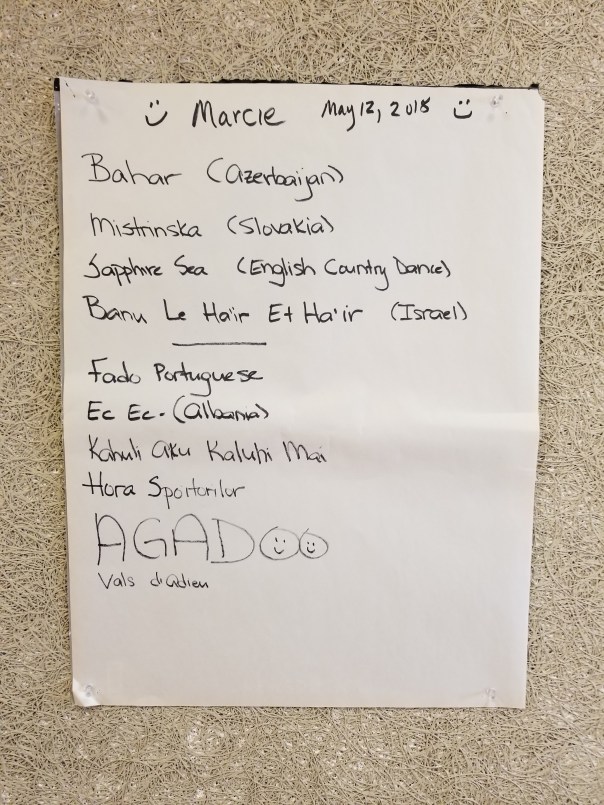 Marcie May 12, 2018
Bahar (Azerbaijan)
Mistrinska (Slovakia)
Sapphire Sea (English Country Dance)
Banu Le Ha'ir Et Ha'ir (Israel)
Fado Portuguese
Ec Ec. (Albania)
Kahuli Aku Kaluhi Mai
Hora Sportorilor
AGADOO
Vals d'adieu